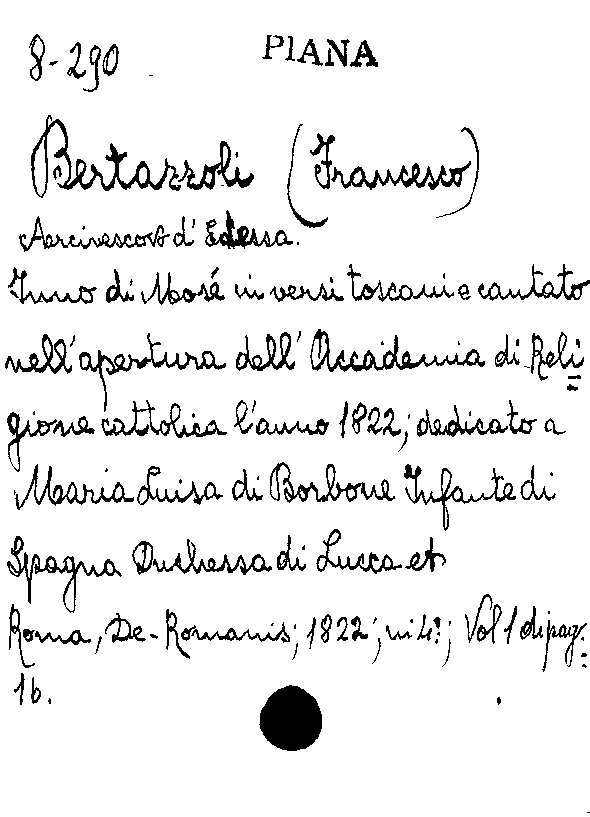 8-290 PIANA
Bertazzoli (Francesco)
Arcivescovo d' Edessa.
Inno di Mosé in versi toscani e cantato
nell'apertura dell' Accademia di Reli=
gione cattolica l'anno 1822; dedicato a
Maria Luisa di Borbone Infante di
Spagna Duchessa di Lucca et
Roma, De-Romanis; 1822; in 4º; Vol 1 di pag:
16.